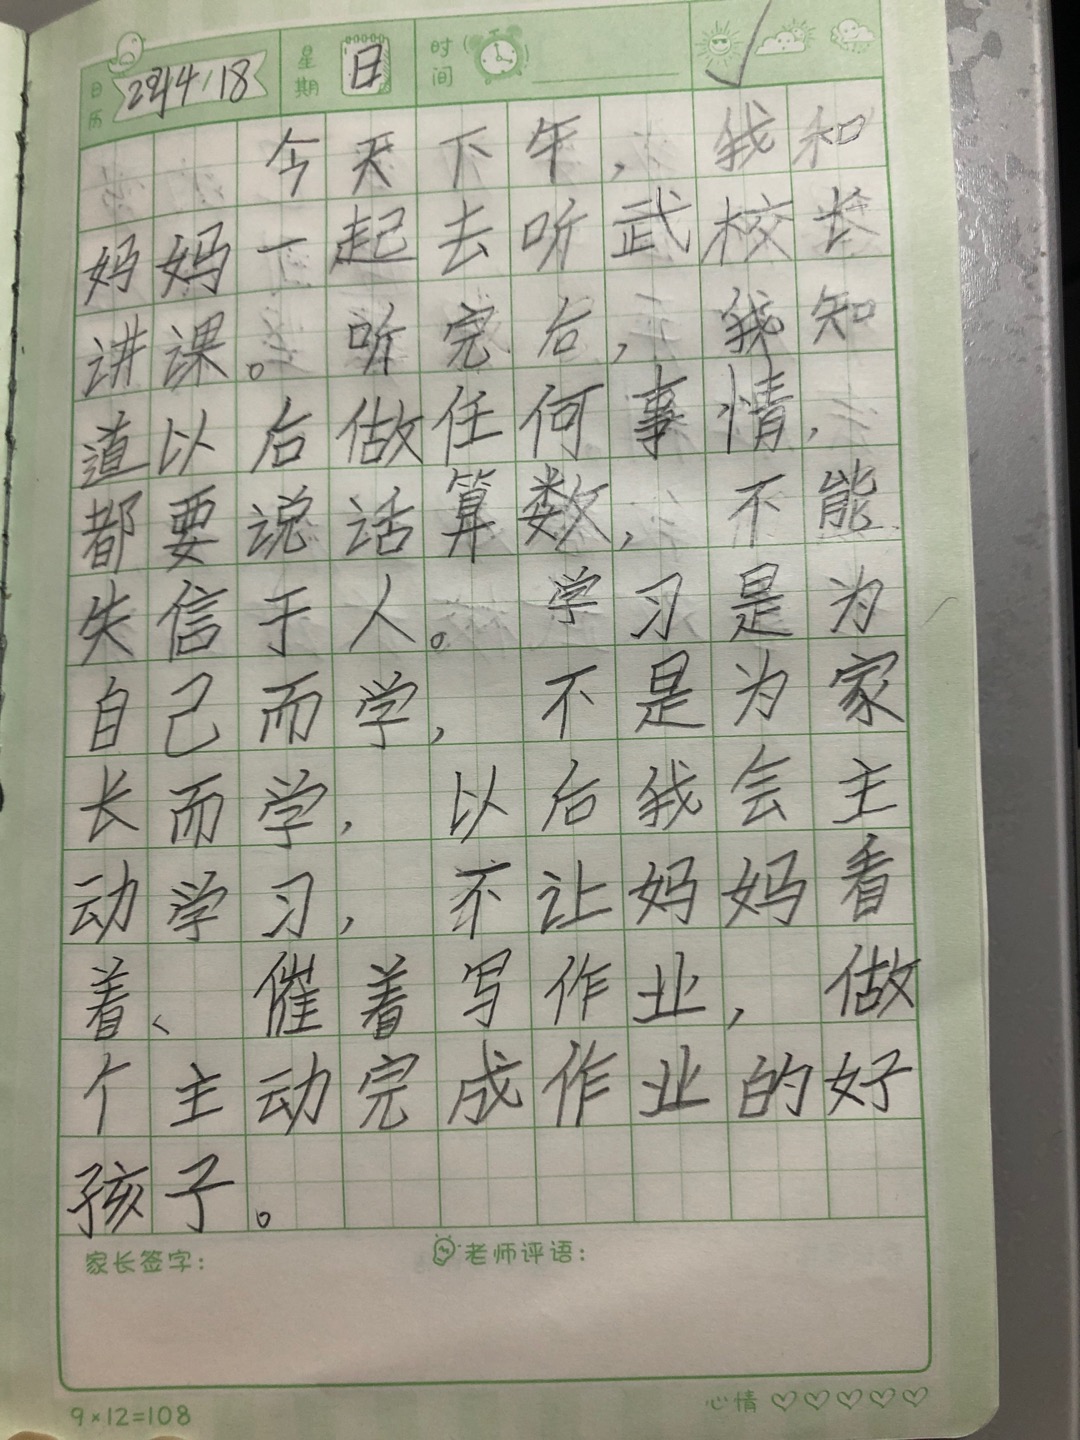 日历 星期 日 时间
今天下午，我和
妈妈一起去听武校长
讲课。听完后，我知
道以后做任何事情，
都要说话算数，不能
失信于人。学习是为
自己而学，不是为家
长而学，以后我会主
动学习，不让妈妈看
着、催着写作业，做
个主动完成作业的好
孩子。
家长签字： 老师评语：
9×12=108 心情